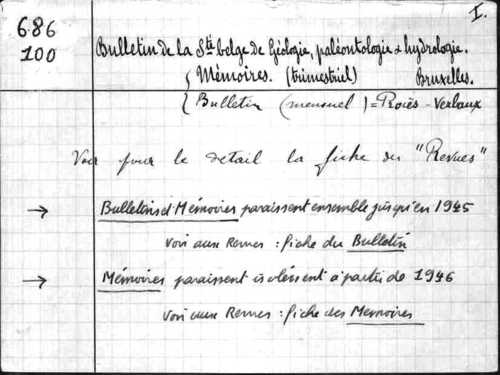 I.
686
100
Bulletin de la Sté belge de Géologie, paléontologie & hydrologie.
{ Mémoires. (trimestriel) Bruxelles.
{ Bulletin (mensuel) = Procès-Verbaux
Voir pour le detail la fiche des "Revues"
→ Bulletins et Mémoires paraissent ensemble jusqu'en 1945
Voir aux Revues : fiche du Bulletin
→ Mémoires paraissent isolément à partir de 1946
Voir aux Revues : fiche des Memoires